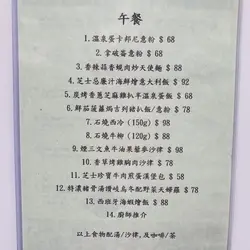 午餐
1.溫泉蛋卡邦尼意粉 $ 68
2.拿破崙意粉 $ 68
3.香辣蒜香燒肉炒天使麵 $ 88
4.芝士忌廉汁海鮮燴意大利飯 $ 92
5.炭烤香蔥芝麻雞扒半溫泉蛋飯 $ 68
6.鮮茄菠蘿焗吉列豬扒飯/意粉 $ 78
7.石燒西冷 (150g) $ 98
8.石燒牛柳 (120g) $ 88
9.煙三文魚牛油果藜麥沙律 $ 98
10.香草烤雞胸肉沙律 $ 78
11.芝士珍寶牛肉煎蛋漢堡包 $ 58
12.特濃豬骨湯讚岐烏冬配野菜天婦羅 $ 78
13.西班牙海蝦燴飯 $ 88
14.廚師推介
以上食物配湯/沙律,及咖啡/茶